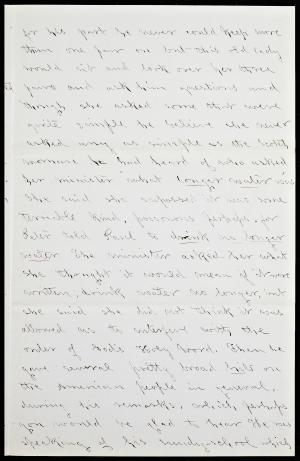 for his part he never could keep more
than one pair on but this old lady
would sit and look over her three
pairs and ask him questions and
though she asked some that were
quite simple he believe she never
asked any as simple as the Scotch
woman he had heard of who asked
her minister what longer water was
She said she supposed it was some
terrible kind, poisonous perhaps, for
Peter told Paul to drink no longer
water The minister asked her what
she thought it would mean if it were
written, drink water no longer, but
she said she did not think it was
allowed us to interfere with the
order of God's Holy Word. Then he
gave several pretty broad hits on
the American people in general,
during his remarks, which perhaps
you would be glad to hear He was
speaking of his Sunday-school which